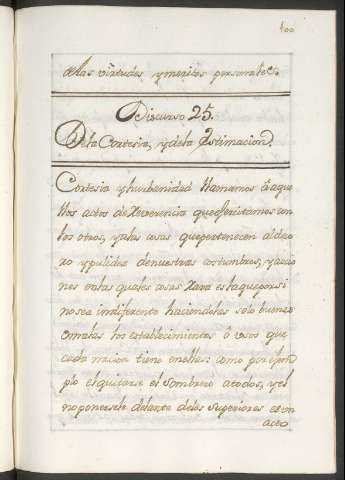 100
de las virtudes, y meritos personales.
Discurso 25.
De la Cortesia, y de la Estimacion.
Cortesia y hurbanidad llamamos à aque
llos actos de Reverencia que exercitamos con
los otros, y a las cosas que pertenecen al de
ro y pulidez de nuestras costumbres, y accio
nes en las quales cosas rara es la que por si
no sea indiferente haciendolas solo buenas
o malas los establecimientos ô usos que
cada nacion tiene en ellas: como por exem
plo el quitarse el sombrero a todos, y el
no ponersele delante de los Superiores es un
acto